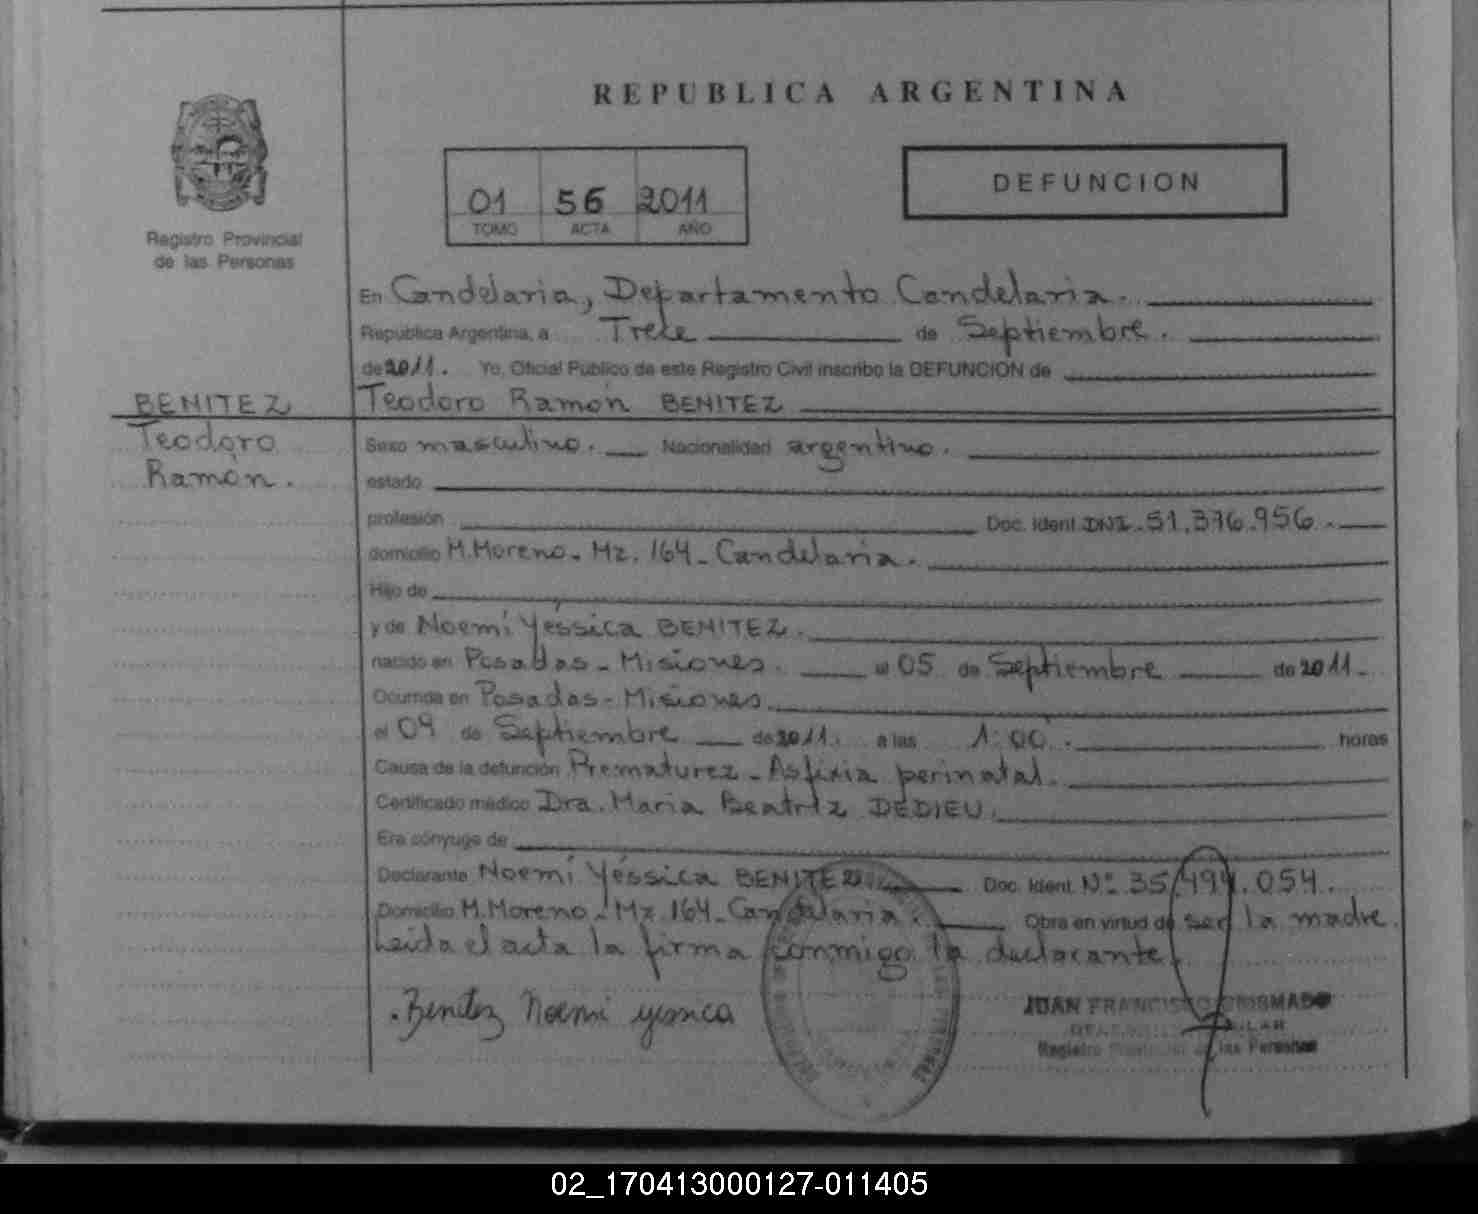 REPUBLICA ARGENTINA
01 56 2011
TOMO ACTA AÑO
DEFUNCION
Registro Provincial
de las Personas
En Candelaria, Departamento Candelaria.
República Argentina, a Trece de Septiembre.
de 2011. Yo, Oficial Público de este Registro Civil inscribo la DEFUNCION de
BENITEZ
Teodoro
Ramón.
Teodoro Ramón BENITEZ
Sexo masculino. Nacionalidad argentino.
estado
profesión Doc. Ident. DNI. 51.376.956.
domicilio M.Moreno. Mz. 164. Candelaria.
Hijo de
y de Noemí Yéssica BENITEZ.
nacido en Posadas - Misiones. el 05 de Septiembre de 2011.
Ocurrida en Posadas - Misiones.
el 09 de Septiembre de 2011. a las 1:00. horas
Causa de la defunción Prematurez - Asfixia perinatal.
Certificado médico Dra. Maria Beatriz DEDIEU.
Era cónyuge de
Declarante Noemí Yéssica BENITEZ Doc. Ident. Nº 35.494.054.
Domicilio M.Moreno. Mz 164. Candelaria. Obra en virtud de ser la madre.
Leida el acta la firma conmigo la declarante.
Benitez Noemi yessica
JUAN FRANCISCO
Registro Provincial de las Personas
02_170413000127-011405